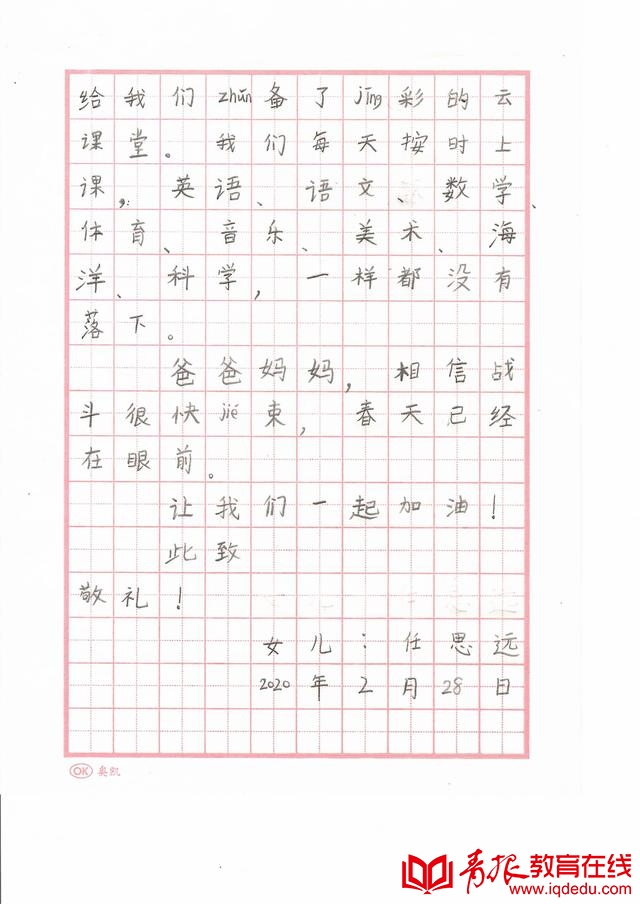 给我们zhǔn备了jīng彩的云
课堂。我们每天按时上
课,：英语、语文、数学、
体育、音乐、美术、海
洋、科学，一样都没有
落下。
爸爸妈妈，相信战
斗很快jié束，春天已经
在眼前。
让我们一起加油！
此致
敬礼！
女儿：任思远
2020年2月28日
OK 奥凯
青报教育在线
www.iqdedu.com